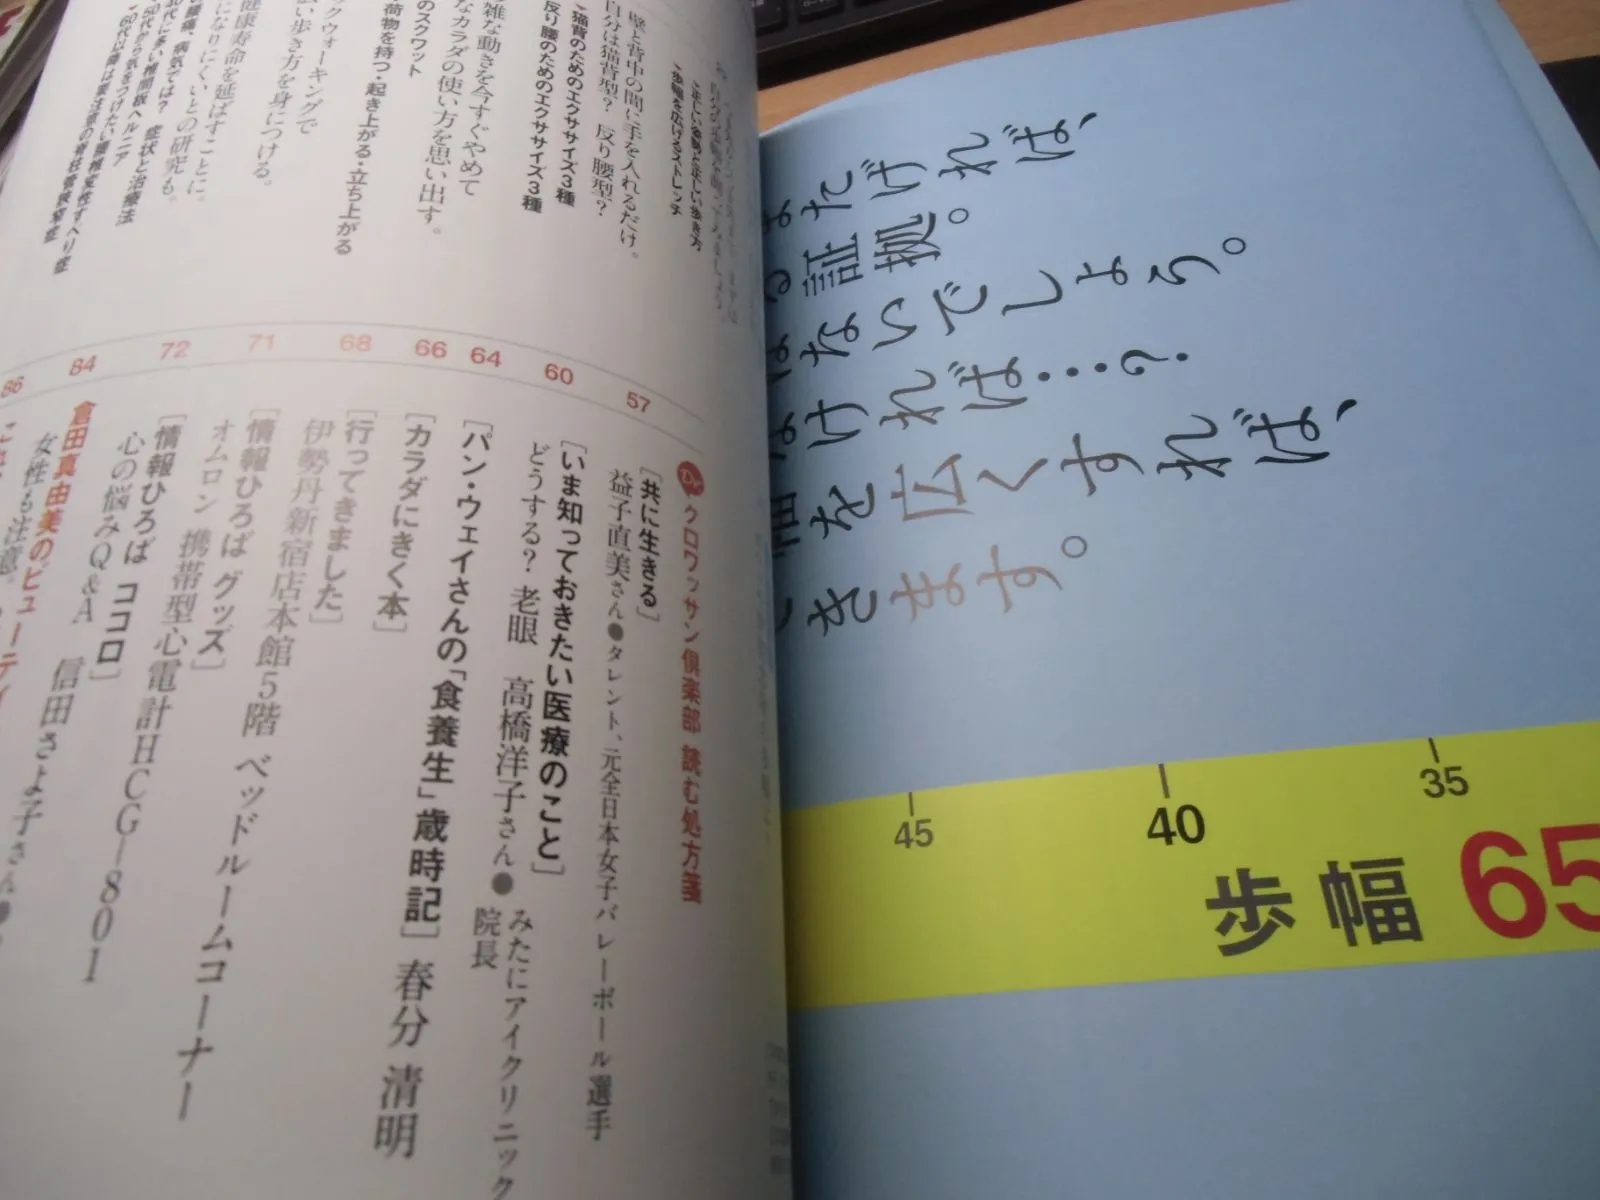 壁と背中の間に手を入れるだけ。
自分は猫背型？ 反り腰型？
猫背のためのエクササイズ3種
反り腰のためのエクササイズ3種
雑な動きを今すぐやめて
なカラダの使い方を思い出す。
のスクワット
荷物を持つ・起き上がる・立ち上がる
クウォーキングで
広い歩き方を身につける。
健康寿命を延ばすことに。
になりにくいとの研究も。
腰痛、病気では？ 症状と治療法
60代以降は要注意の脊柱管狭窄症
正しい姿勢と正しい歩き方
歩幅を広げるストレッチ
57
60
64
66
68
71
72
84
86
Dr.クロワッサン倶楽部 読む処方箋
［共に生きる］
益子直美さん●タレント、元全日本女子バレーボール選手
［いま知っておきたい医療のこと］
どうする？ 老眼 高橋洋子さん●みたにアイクリニック院長
［パン・ウェイさんの「食養生」歳時記］ 春分 清明
［カラダにきく本］
［行ってきました］
伊勢丹新宿店本館5階 ベッドルームコーナー
［情報ひろば グッズ］
オムロン 携帯型心電計HCG-801
［情報ひろば ココロ］
心の悩みQ&A 信田さよ子さん●
倉田真由美のビューティ
女性も注意。
だければ、
証拠。
はないでしょう。
なければ…？
幅を広くすれば、
きます。
45
40
35
歩幅 65